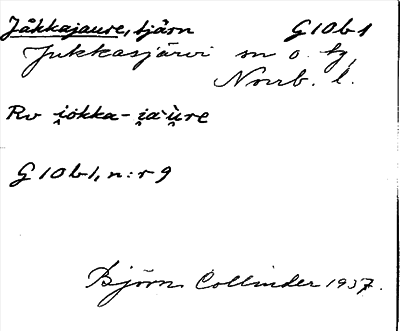 Jåkkajaure, tjärn G 10 b 1
Jukkasjärvi sn o. tg,
Norrb. l.
Rv i̯okka-i̯a'u̯re
G 10 b 1, n:r 9
Björn Collinder 1937.